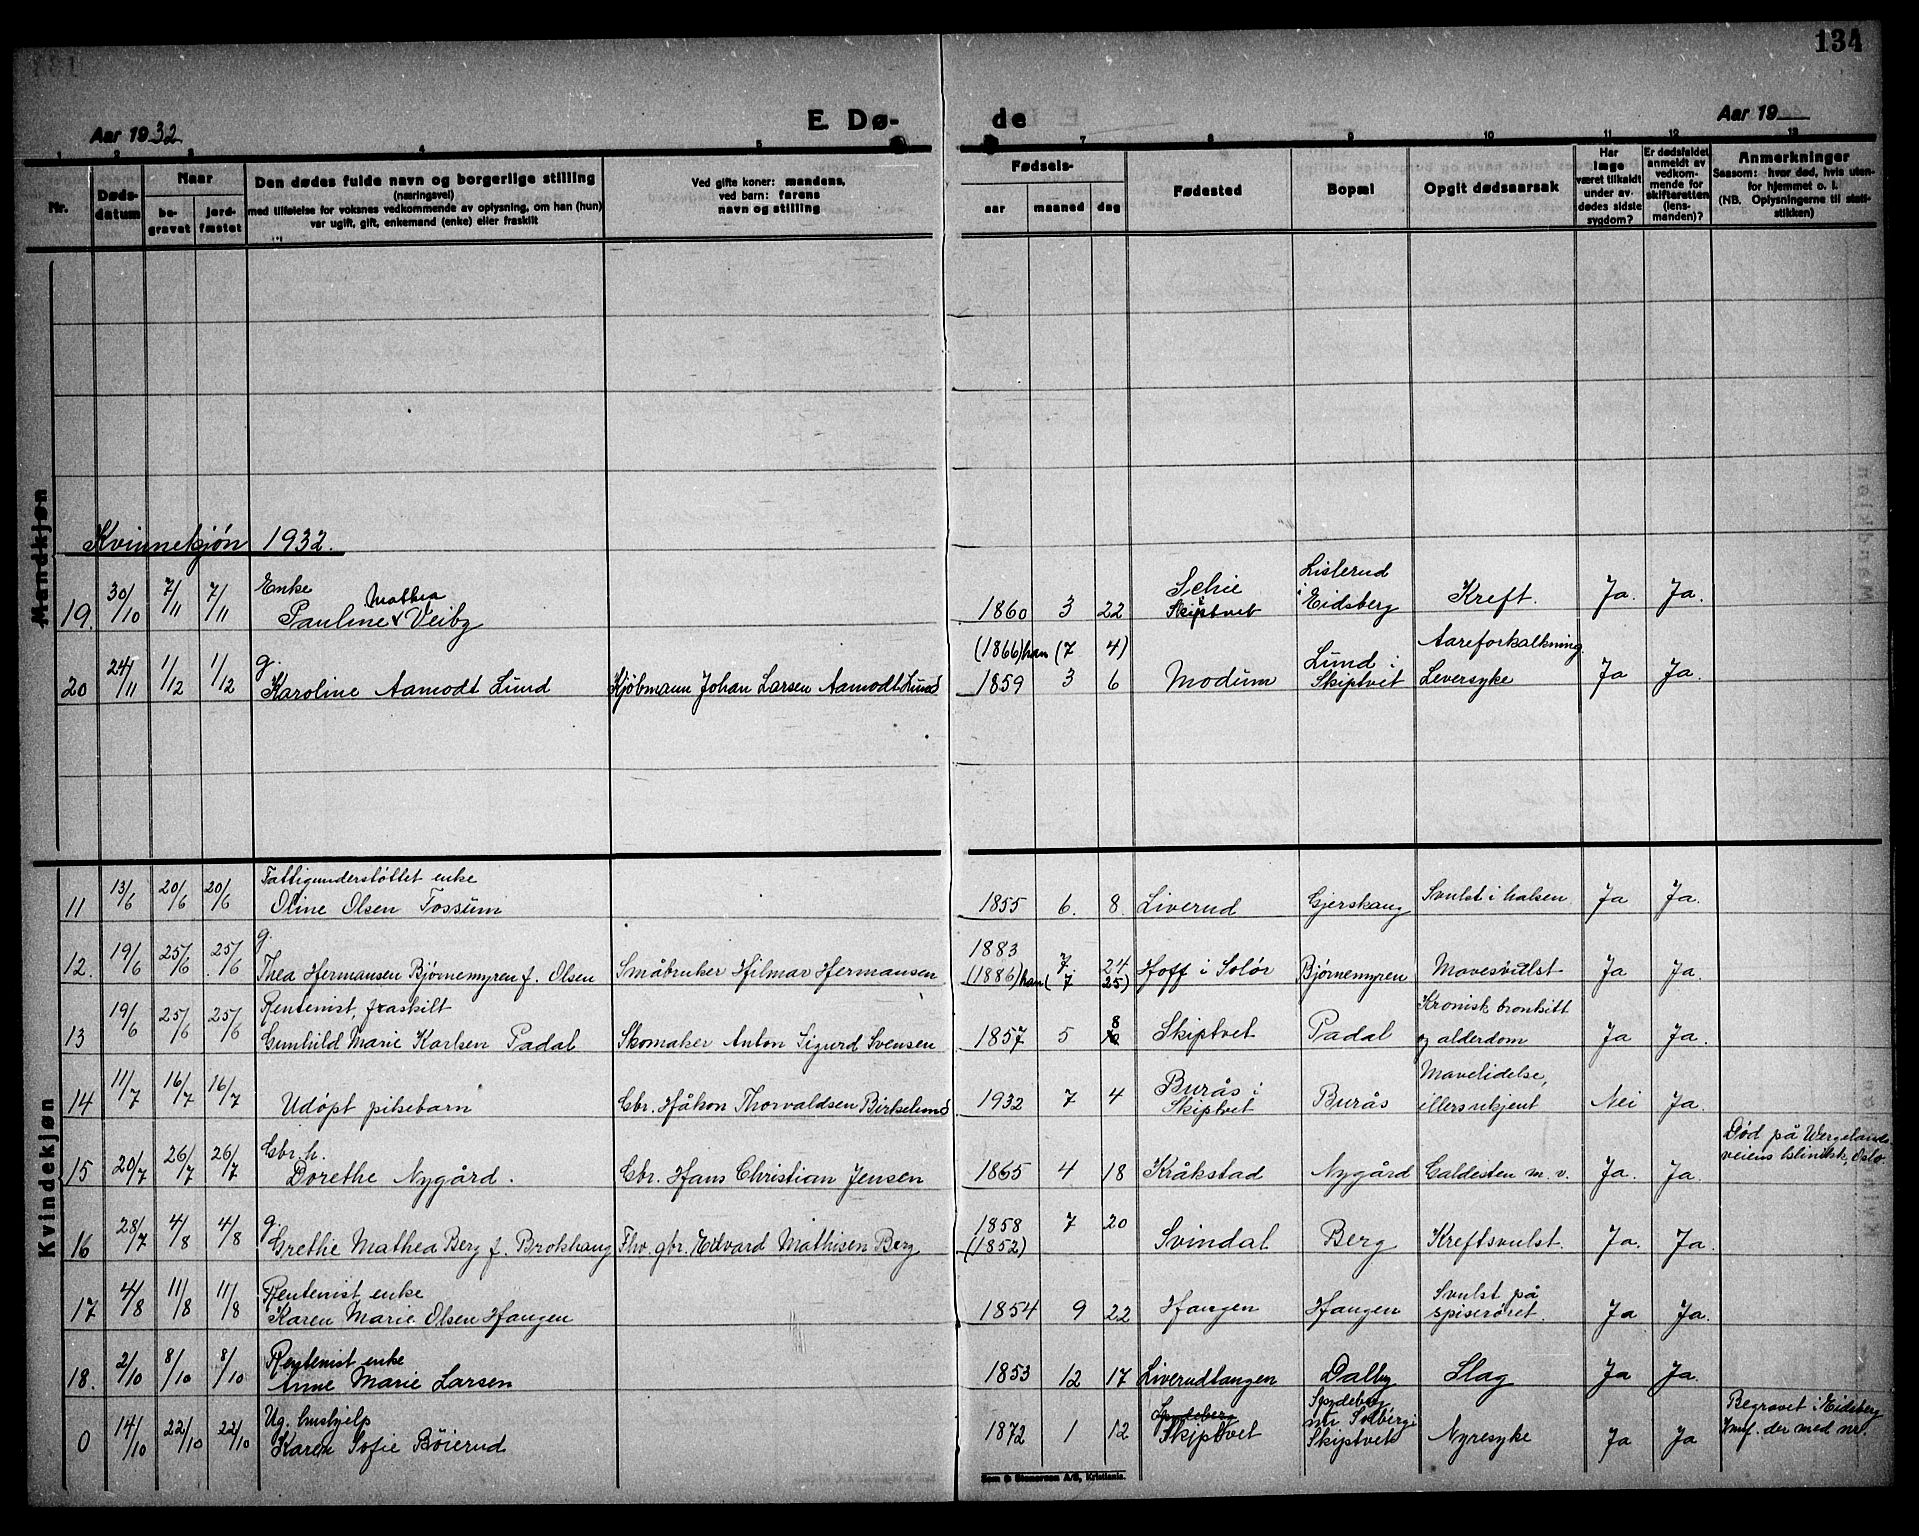 134
Aar 1932
E. Dø-
de
Aar 19
1 2 3 4 5 7 8 9 10 11 12 13
Nr.
Døds-
datum
Naar
be-
gravet
jord-
fæstet
Den dødes fulde navn og borgerlige stilling
(næringsvei)
med tilføielse for voksnes vedkommende av oplysning, om han (hun)
var ugift, gift, enkemand (enke) eller fraskilt
Ved gifte koner: mandens,
ved børn: farens
navn og stilling
Fødsels-
aar maaned dag
Fødested
Bopæl
Opgit dødsaarsak
Har
læge
været tilkaldt
under av-
dødes sidste
sygdom?
Er dødsfaldet
anmeldt av
vedkom-
mende for
skifteretten
(lens-
manden)?
Anmerkninger
Saasom: hvor død, hvis uten-
for hjemmet o. l.
(NB. Oplysningerne til stati-
stikken)
Mandkjøn
Kvinnekjøn 1932.
Enke Listerud
19. 30/10 7/11 7/11 Pauline Mathea Veiby 1860 3 22 Schie i Skiptvet i Eidsberg Kreft. Ja. Ja.
g. (1866) han (7 4) Lund i Aareforkalkning
20 24/11 1/12 1/12 Karoline Aamodt Lund Kjøbmann Johan Larsen Aamodt Lund 1859 3 6 Modum Skiptvet Leversyke Ja Ja.
Kvindekjøn
Fattigunderstøttet enke
11 13/6 20/6 20/6 Oline Olsen Fossum 1855 6. 8. Liverud Gjershaug Svulst i halsen Ja Ja.
g. 1883 7 24
12. 19/6 25/6 25/6 Thea Hermansen Bjørnemyren f. Olsen Småbruker Hilmar Hermansen (1886) han (7 25) Hoff i Solør Bjørnemyren Mavesvulst Ja Ja.
Rentenist, fraskilt Kronisk bronkitt
13 19/6 25/6 25/6 Gunhild Marie Karlsen Padal Skomaker Anton Sigurd Svensen 1857 5 8 Skiptvet Padal og alderdom Ja Ja.
Burås i Mavelidelse,
14 11/7 16/7 16/7 Udøpt pikebarn Gbr. Håkon Thorvaldsen Birkelund 1932 7 4 Skiptvet Burås illers ukjent Nei Ja.
Gbr. h. Død på Wergelands-
15 20/7 26/7 26/7 Dorethe Nygård. Gbr. Hans Christian Jensen 1865 4 18 Kråkstad Nygård Galdesten m. v. Ja. Ja. veiens klinikk, Oslo.
g. 1858 7 20
16 28/7 4/8 4/8 Grethe Mathea Berg f. Brokhaug Fhv. gbr. Edvard Mathisen Berg (1852) Svindal Berg Kreftsvulst. Ja. Ja.
Rentenist enke Svulst på
17 4/8 11/8 11/8 Karen Marie Olsen Haugen 1854 9 22 Haugen Haugen spiserøret. Ja Ja.
Rentenist enke
18. 2/10 8/10 8/10 Anne Marie Larsen 1853 12 17 Liverudtangen Dalby Slag Ja Ja.
Ug. hushjelp Spydeberg Spydeberg Begravet i Eidsberg
0 14/10 22/10 22/10 Karen Sofie Bøierud 1872 1 12 Skiptvet nu Solberg i Skiptvet Nyresyke Ja Ja Innf. der med nr.
Sem & Stenersen A/S, Kristiania.